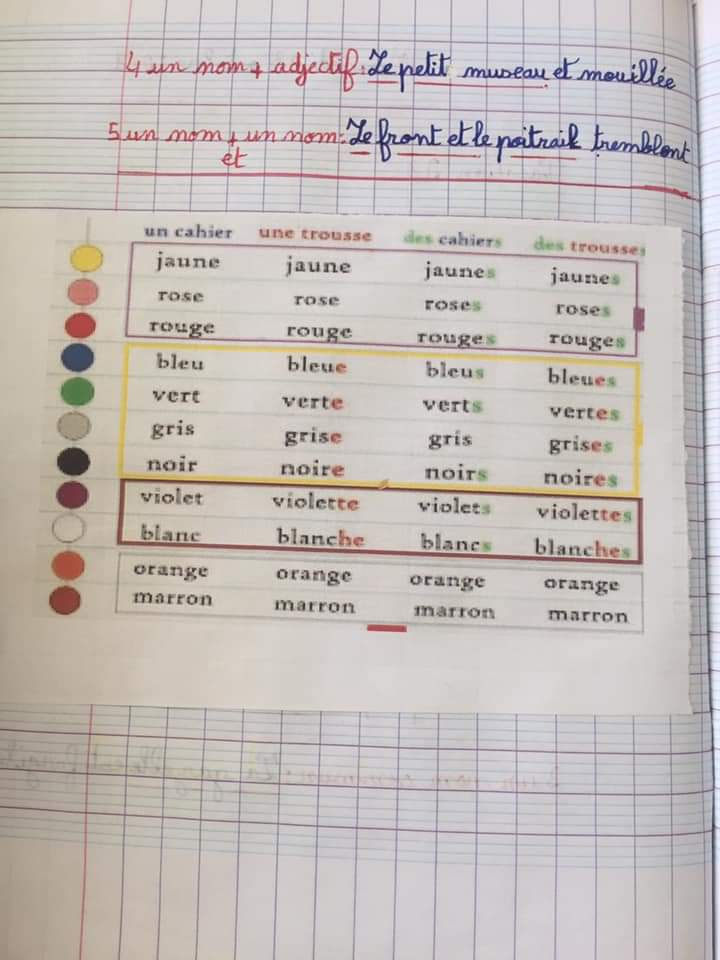 4 un nom + adjectif: Le petit museau et mouillée
5 un nom + un nom: Le front et le poitrail tremblent
et
un cahier une trousse des cahiers des trousses
jaune jaune jaunes jaunes
rose rose roses roses
rouge rouge rouges rouges
bleu bleue bleus bleues
vert verte verts vertes
gris grise gris grises
noir noire noirs noires
violet violette violets violettes
blanc blanche blancs blanches
orange orange orange orange
marron marron marron marron